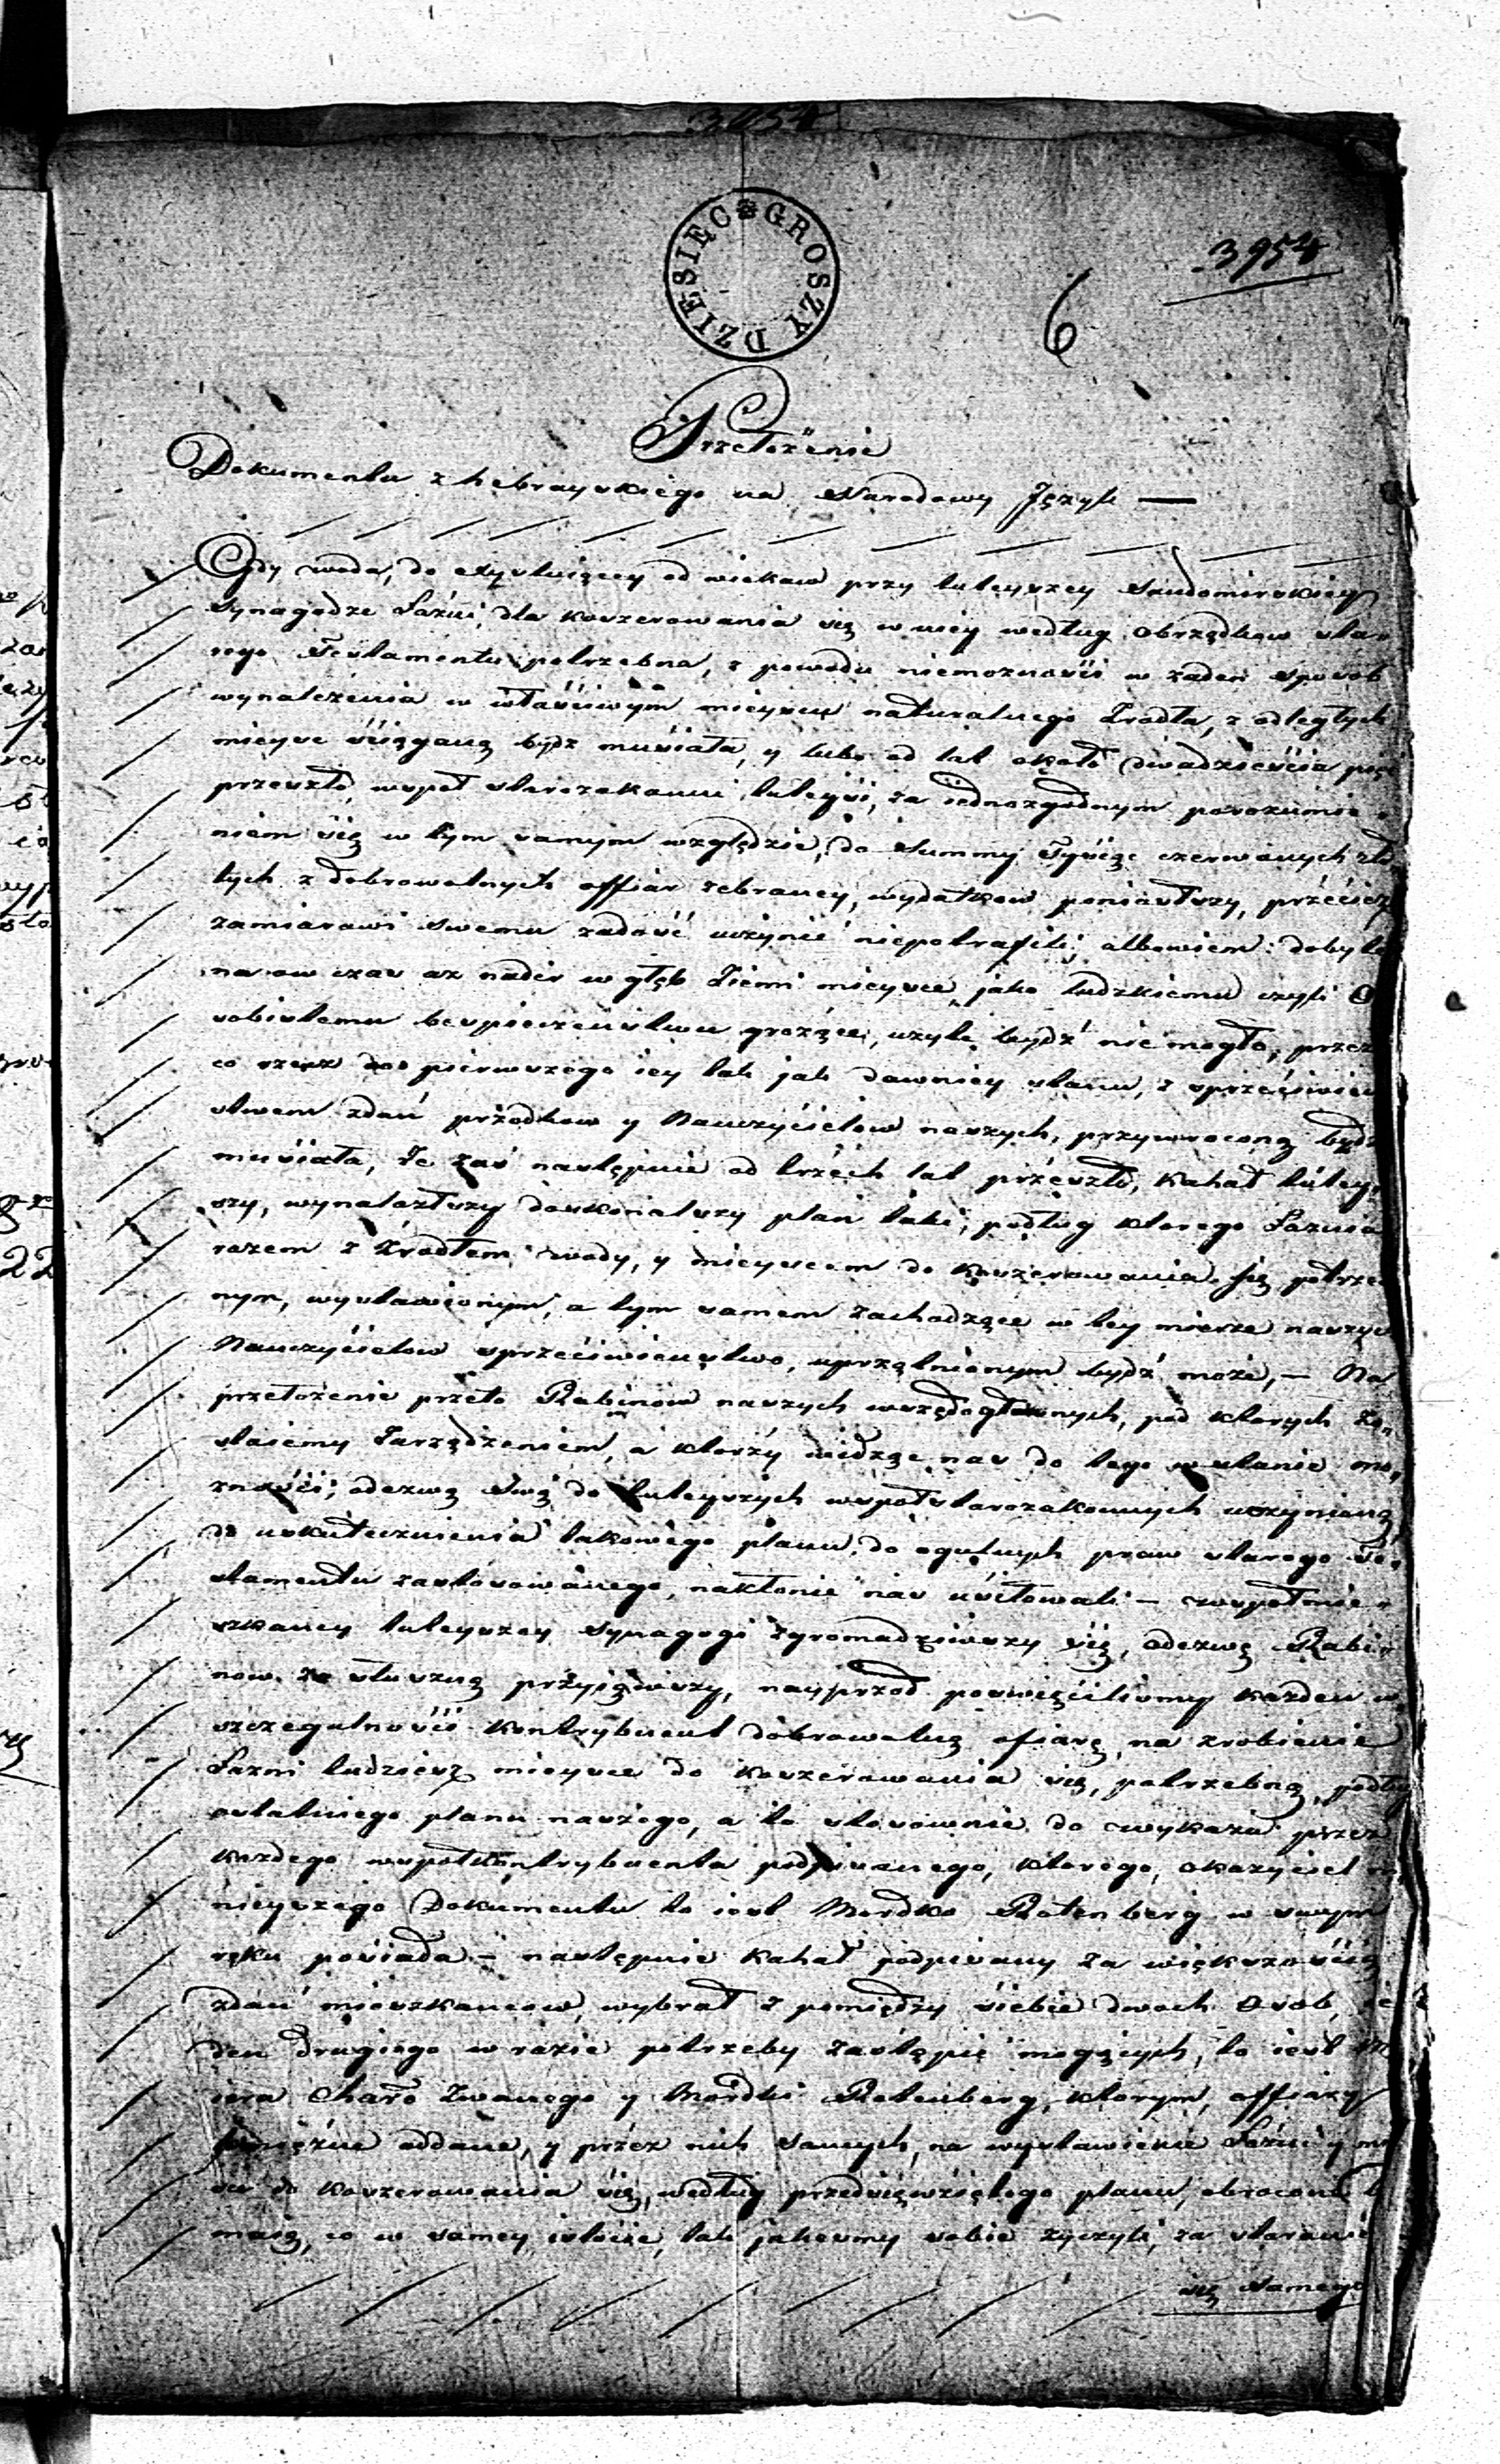 3954
DZIESIĘC GROSZY
3954
6
Przełożenie
Dokumentu z hebrayskiego na Narodowy Język —
Gdy woda, do exystuiącey od wiekow przy tuteyszey Sandomirskiey
Synagodze Łaźni, dla koszerowania się w niey według obrządkow sta-
rego Testamentu potrzebna, z powodu niemożności w żaden sposob
wynalezienia w właściwym mieyscu naturalnego Źrodła, z odległych
mieysc ściąganą bydź musiała, y lubo od lat około dwadzieścia pięć
przeszło, wspoł starozakonni tuteysi, za iednozgodnym porozumie-
niem się w tym samym względzie, do Summy Tysiąc czerwonych zło
tych z dobrowolnych offiar zebraney, wydatkow poniosłszy, przecież
zamiarowi swemu zadość uczynić niepotrafili, albowiem dobyte
na ow czas aż nadto w głąb Ziemi mieysce, jako ludzkiemu czyli O
sobistemu bespieczeństwu grożące, użyte bydź nie mogło, przez
co rzecz do pierwszego iey tak jak dawniey stanu, z sprzeciwień
stwem zdań przodkow y Nauczycielow naszych, przywroconą bydź
musiała, Że zaś następnie od trzech lat przeszło, Kahał tutey-
szy, wynalazłszy doskonalszy plan taki, podług ktorego Łaznia
razem z Źrodłem wody, y mieyscem do koszerowania się potrzeb
nym, wystawionym, a tym samem zachodzące w tey mierze naszych
Nauczycielow sprzeciwieństwo, uprzątnionym bydź może, — Na
przełożenie przeto Rabinow naszych wszędogłownych, pod ktorych zo-
staiemy Zarządzeniem, a ktorzy widząc nas do tego w stanie mo-
żności, odezwą swą do tuteyszych wspołstarozakonnych uczynioną
do uskutecznienia takowego planu, do ogulnych praw starego Te-
stamentu zastosowanego, nakłonić nas usiłowali — wspołmie-
szkańcy tuteyszey Synagogi zgromadziwszy się, odezwę Rabi-
now za słuszną przyiąwszy, nayprzod poswięciliśmy każden w
szczegulności kontrybuent dobrowolną ofiarę na zrobienie
Łazni tudzież mieysca do koszerowania się, potrzebną, podług
ostatniego planu naszego, a to stosownie do wykazu przez
każdego wspołkontrybuenta podpisanego, ktorego, okaziciel ni
nieyszego Dokumentu to iest Mordko Rotenberg w swym
ręku posiada — następnie Kahał podpisany za większością
zdań mieszkańcow, wybrał z pomiędzy siebie dwoch Osob, ie
den drugiego w razie potrzeby zastąpić mogących, to iest
Charo zwanego y Mordki Rotenberg, ktorym, offiary
pieniężne oddane, y przez nich samych, na wystawienie Łaźni y mi
sca do koszerowania się, według przedsięwziętego planu, obrocone
maią, co w samey istocie, tak jakeśmy sobie życzyli, za staranie
się samego